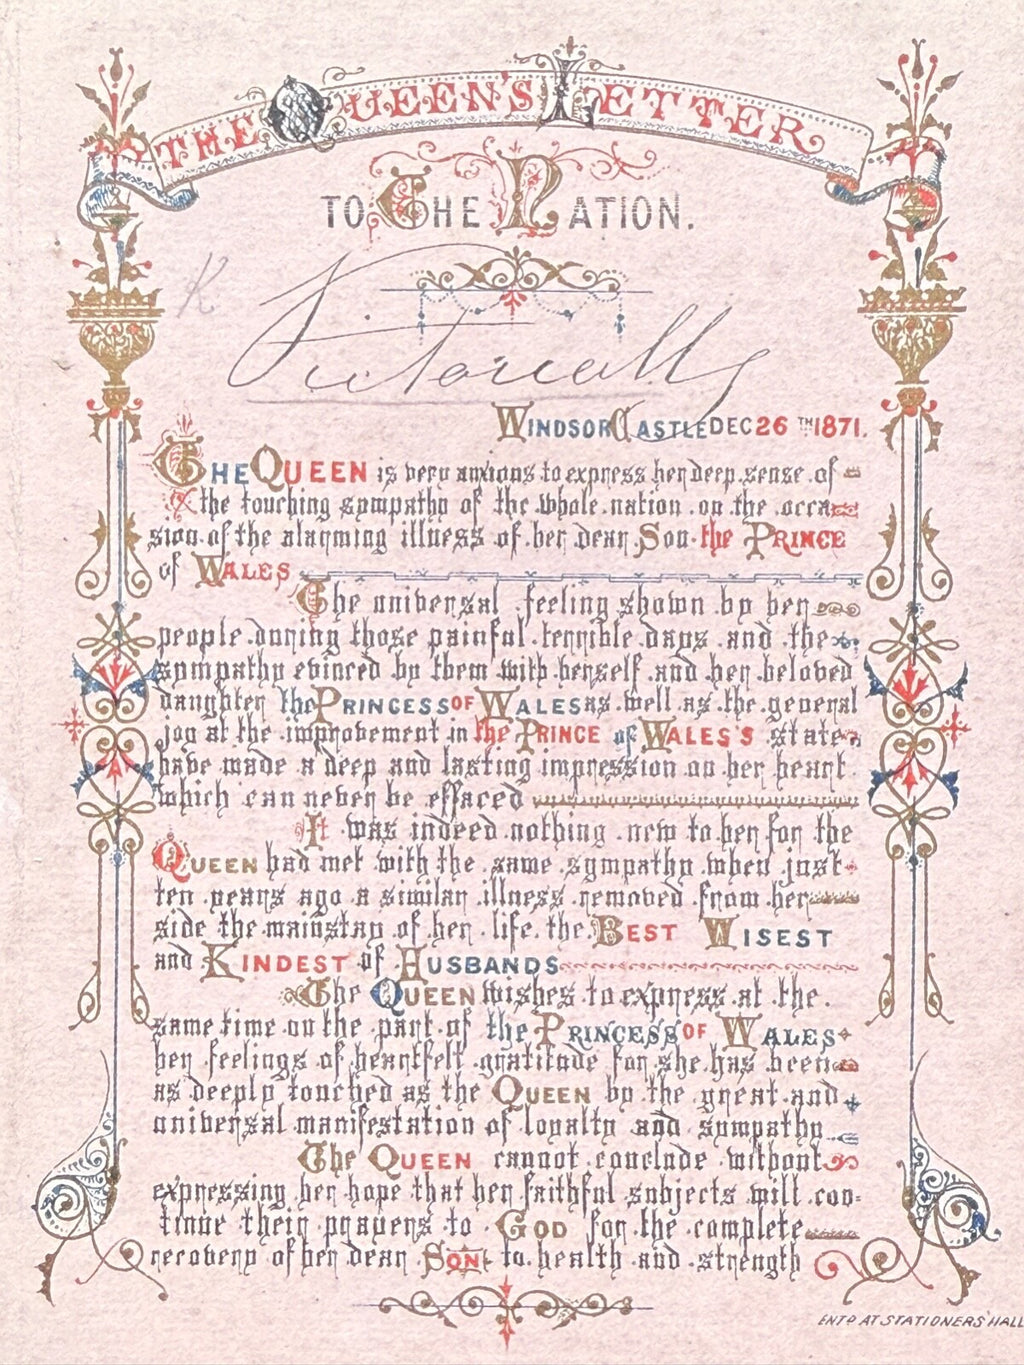 THE QUEEN'S LETTER
TO THE NATION.
K
WINDSOR CASTLE DEC 26TH 1871.
THE QUEEN is very anxious to express her deep sense of
the touching sympathy of the whole nation on the occa
sion of the alarming illness of her dear Son the PRINCE
of WALES
The universal feeling shown by her
people during those painful terrible days and the
sympathy evinced by them with herself and her beloved
daughter the PRINCESS OF WALES as well as the general
joy at the improvement in the PRINCE of WALES'S state
have made a deep and lasting impression on her heart
which can never be effaced
It was indeed nothing new to her for the
QUEEN had met with the same sympathy when just
ten years ago a similar illness removed from her
side the mainstay of her life the BEST WISEST
and KINDEST of HUSBANDS
The QUEEN wishes to express at the
same time on the part of the PRINCESS OF WALES
her feelings of heartfelt gratitude for she has been
as deeply touched as the QUEEN by the great and
universal manifestation of loyalty and sympathy
The QUEEN cannot conclude without
expressing her hope that her faithful subjects will con=
tinue their prayers to GOD for the complete
recovery of her dear SON to health and strength
ENTD AT STATIONERS' HALL